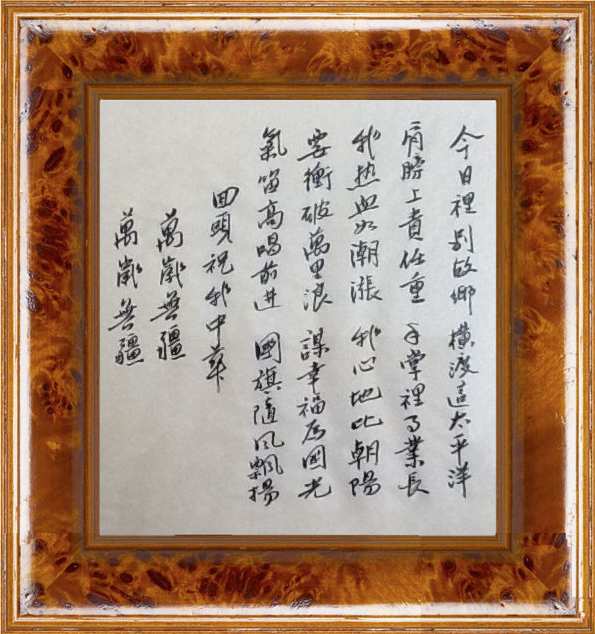 今日裡別故鄉 橫渡這太平洋
肩膀上責任重 手掌裡事業長
我热血如潮漲 我心地比朝陽
要衝破萬里浪 謀幸福为國光
氣笛高唱前进 國旗隨风飄揚
回頭祝我中華
萬歲無疆
萬歲無疆